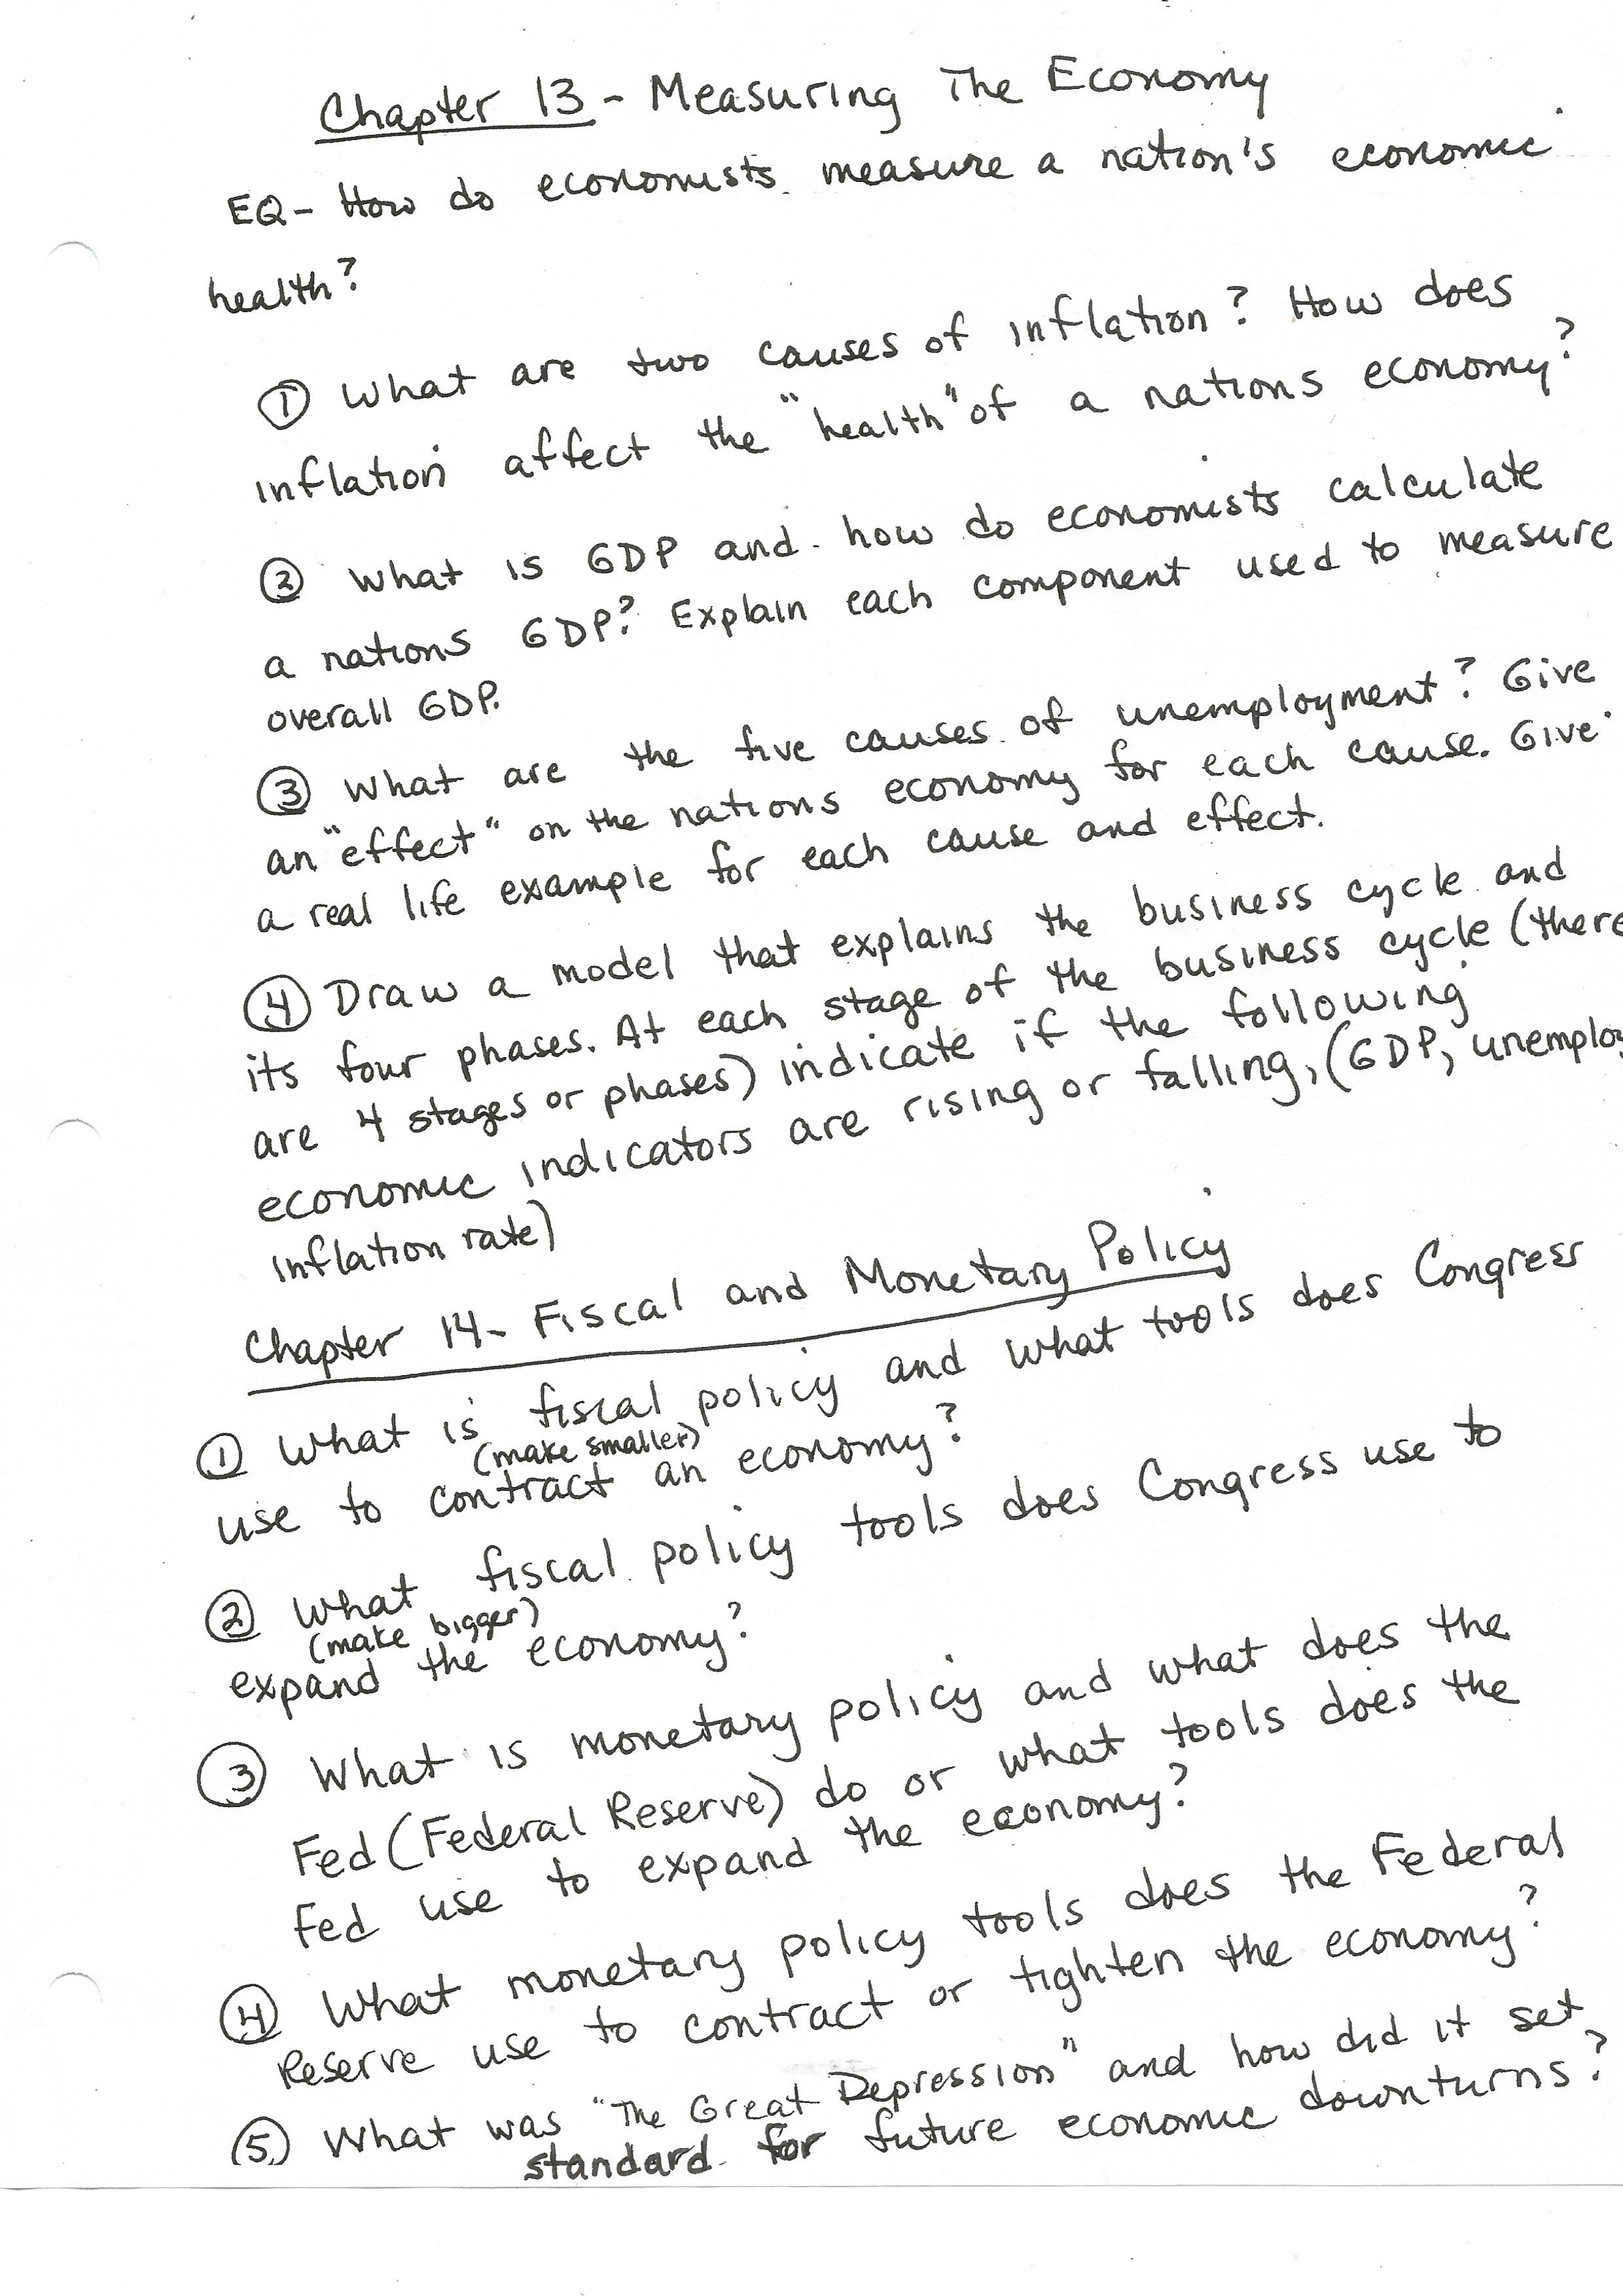 Chapter 13 - Measuring The Economy
EQ- How do economists measure a nation's economic
health?
① What are two causes of inflation? How does
inflation affect the "health" of a nations economy?
② What is GDP and how do economists calculate
a nations GDP? Explain each component used to measure
overall GDP.
③ What are the five causes of unemployment? Give
an "effect" on the nations economy for each cause. Give
a real life example for each cause and effect.
④ Draw a model that explains the business cycle and
its four phases. At each stage of the business cycle (there
are 4 stages or phases) indicate if the following
economic indicators are rising or falling, (GDP, unemploy
inflation rate)
Chapter 14- Fiscal and Monetary Policy
① What is fiscal policy and what tools does Congress
(make smaller)
use to contract an economy?
② What fiscal policy tools does Congress use to
(make bigger)
expand the economy?
③ What is monetary policy and what does the
Fed (Federal Reserve) do or what tools does the
Fed use to expand the economy?
④ What monetary policy tools does the Federal
Reserve use to contract or tighten the economy?
⑤ What was "The Great Depression" and how did it set
standard for future economic downturns?